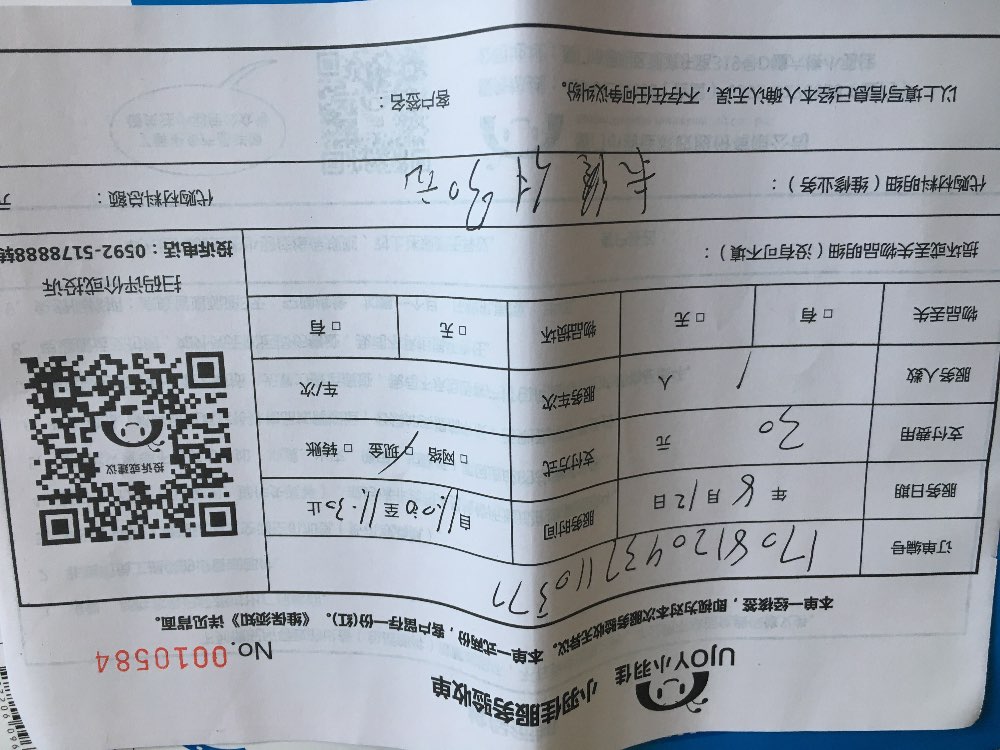 小羽佳服务验收单
UJOY小羽佳
No.0010584
本单一经核签，即视为对本次服务验收无异议。本单一式两份，客户留存一份(红)。《维保须知》详见背面。
订单编号 1708120437110377
服务日期 年 8 月 12 日 服务时间 自 11:00 至 11:30 止
支付费用 30 元 支付方式 □ 网络 □ 现金 □ 转账
服务人数 1 人 服务车次 车/次
物品丢失 □ 有 □ 无 物品损坏 □ 无 □ 有
投诉或建议
扫码评价或投诉
投诉电话：0592-5178888转
损坏或丢失物品明细（没有可不填）：
代购材料明细（维修业务）： 代购材料总额： 元
以上填写信息已经本人确认无误，不存在任何争议纠纷。 客户签名：